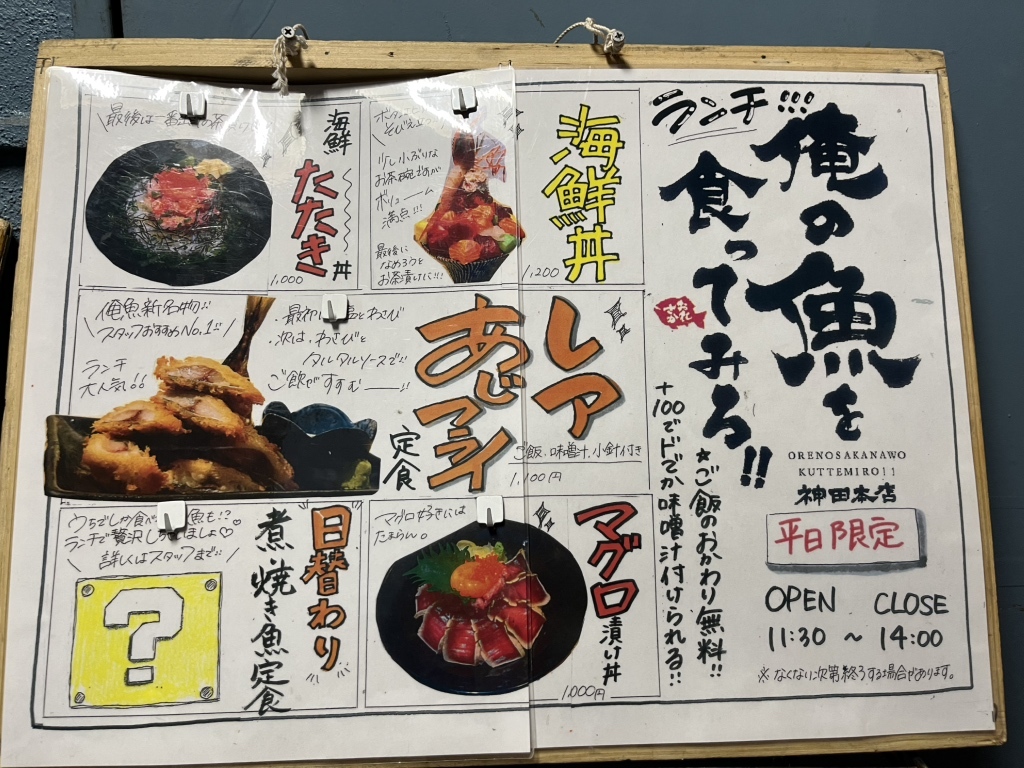 ランチ!!!
俺の魚を
食ってみろ!!
おれ
さかな
ORENOSAKANAWO
KUTTEMIRO!!
神田本店
平日限定
OPEN CLOSE
11:30 ~ 14:00
※なくなり次第終了する場合があります。
★ご飯のおかわり無料!!
+100でドでか味噌汁付けられる!!
海鮮丼
1,200
少し小ぶりな
お茶碗ですが
ボリューーム
満点!!!
最後に
なめろうと
お茶漬けに!!!
海鮮
たたき丼
1,000
最後は一番
レア
あじフライ
定食
ご飯、味噌汁、小鉢付き
1,100円
俺魚新名物!!
スタッフおすすめNo.1!!
ランチ
大人気!!
・最初は 塩とわさび
・次は、わさびと
タルタルソースで!!
ご飯がすすむ――!!
マグロ漬け丼
1,000円
マグロ好きには
たまらん。
日替わり
煮・焼き魚定食
うちでしか食べ 魚も!?♡
ランチで贅沢し ましょ♡
詳しくはスタッフまで!!
?